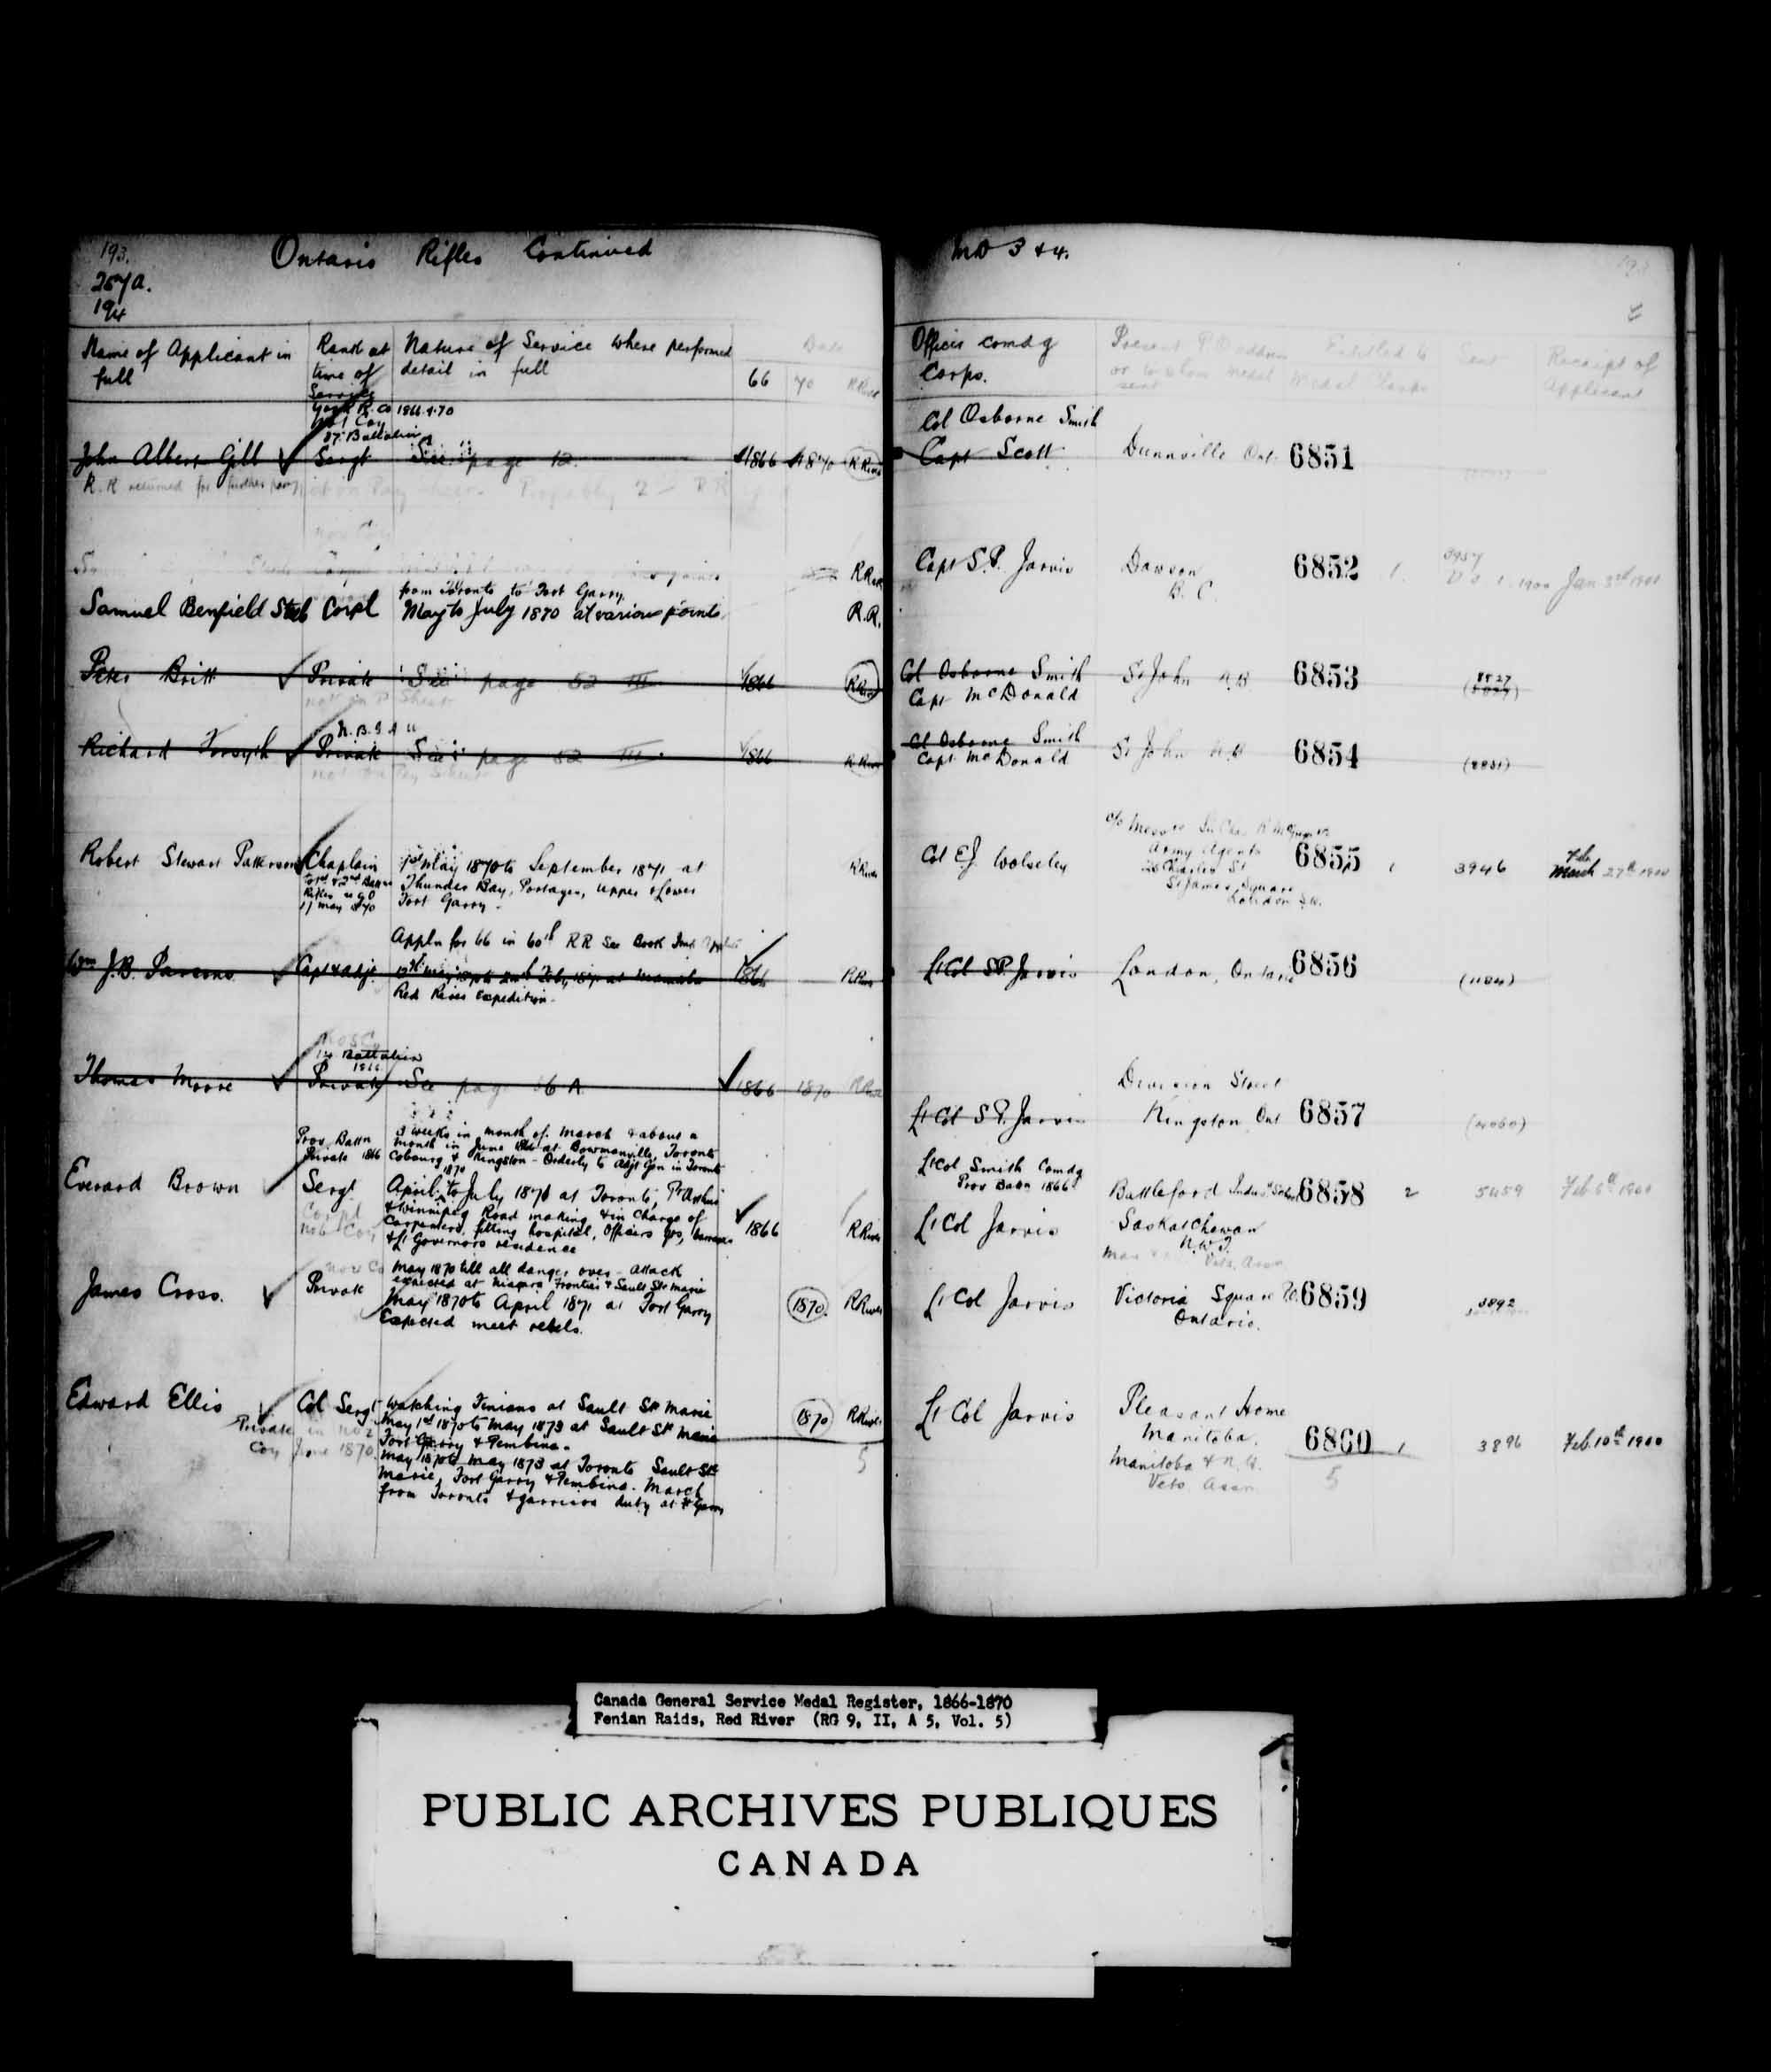 193.
257a.
194
Ontario Rifles Continued
MD 3 & 4.
Name of Applicant in full
Rank at time of Service
Nature of Service where performed detail in full
Date
66
70
R River
Officer comdg Corps.
Present P.O address or to whom medal sent
Entitled to
Medal Clasps
Sent
Receipt of Applicant
York R. Co 1866 & 70
No 1 Coy
37th Battalion
John Albert Gill Sergt See page 12 1866 1870 R River
R.R returned for further
Col Osborne Smith
Capt Scott Dunnville Ont 6851
Capt S.P. Jarvis Dawson 6852 1 Jan 3rd 1901
B.C.
from Toronto to Fort Garry
Samuel Benfield Steele Corpl May to July 1870 at various points R.R.
Peter Britt Private See page 52 III 1866 R River
Col Osborne Smith St John N.B 6853
Capt McDonald
N.B.G.A
Richard Forsyth Private See page 52 III 1866 R River
Col Osborne Smith St John N.B 6854
Capt McDonald
Robert Stewart Patterson Chaplain
to 1st & 2nd Battn
Rifles
11 May 1870
1st May 1870 to September 1871 at
Thunder Bay, Portages, upper & Lower
Fort Garry
R River
Col E.J. Wolseley
Army Agents
Charles St
St James Square
London S.W.
6855 1 3946 Feb
March 27th 1900
Appln for 66 in 60th RR See Book
Wm J.B. Parsons Capt & Adjt
Red River Expedition
1866 R River
Lt Col S.P. Jarvis London, Ontario 6856 (1184)
Battalion
1866
Thomas Moore Private See page 16 A 1866 1870 R River
Lt Col S.P. Jarvis Division Street
Kingston Ont 6857
Prov Battn
Private 1866
3 weeks in month of March & about a
month in June 1866 at Bowmanville, Toronto
Cobourg & Kingston - Orderly to Adjt Gen in Toronto
1870
Everard Brown Sergt
Corpl
No 6 Coy
April to July 1871 at Toronto, P Arthur
& Winnipeg Road making & in Charge of
Carpenters fitting hospital, Officers qrs, barracks
& Lt Governors residence
1866 R River
Lt Col Smith Comdg
Prov Battn 1866
Lt Col Jarvis
Battleford Indust School
Saskatchewan
N.W.T.
Vets. Assn
6858 2 5459 Feb 5th 1900
James Cross. Private
May 1870 till all danger over - Attack
expected at Niagara Frontier & Sault Ste Marie
May 1870 to April 1871 at Fort Garry
Expected meet rebels.
1870 R River
Lt Col Jarvis Victoria Square P.O. 6859 3892
Ontario.
Edward Ellis Col Sergt
Private in No 2
Coy June 1870
Watching Fenians at Sault Ste Marie
May 1st 1870 to May 1873 at Sault Ste Marie
Fort Garry & Pembina.
May 1870 to May 1873 at Toronto Sault Ste
Marie, Fort Garry & Pembina. March
from Toronto & garrison duty at Ft Garry
1870 R River
5
Lt Col Jarvis Pleasant Home
Manitoba.
Manitoba & N.W.
Vets Assn
6860 1 3896 Feb. 10th 1900
5
Canada General Service Medal Register, 1866-1870
Fenian Raids, Red River (RG 9, II, A 5, Vol. 5)
PUBLIC ARCHIVES PUBLIQUES
CANADA